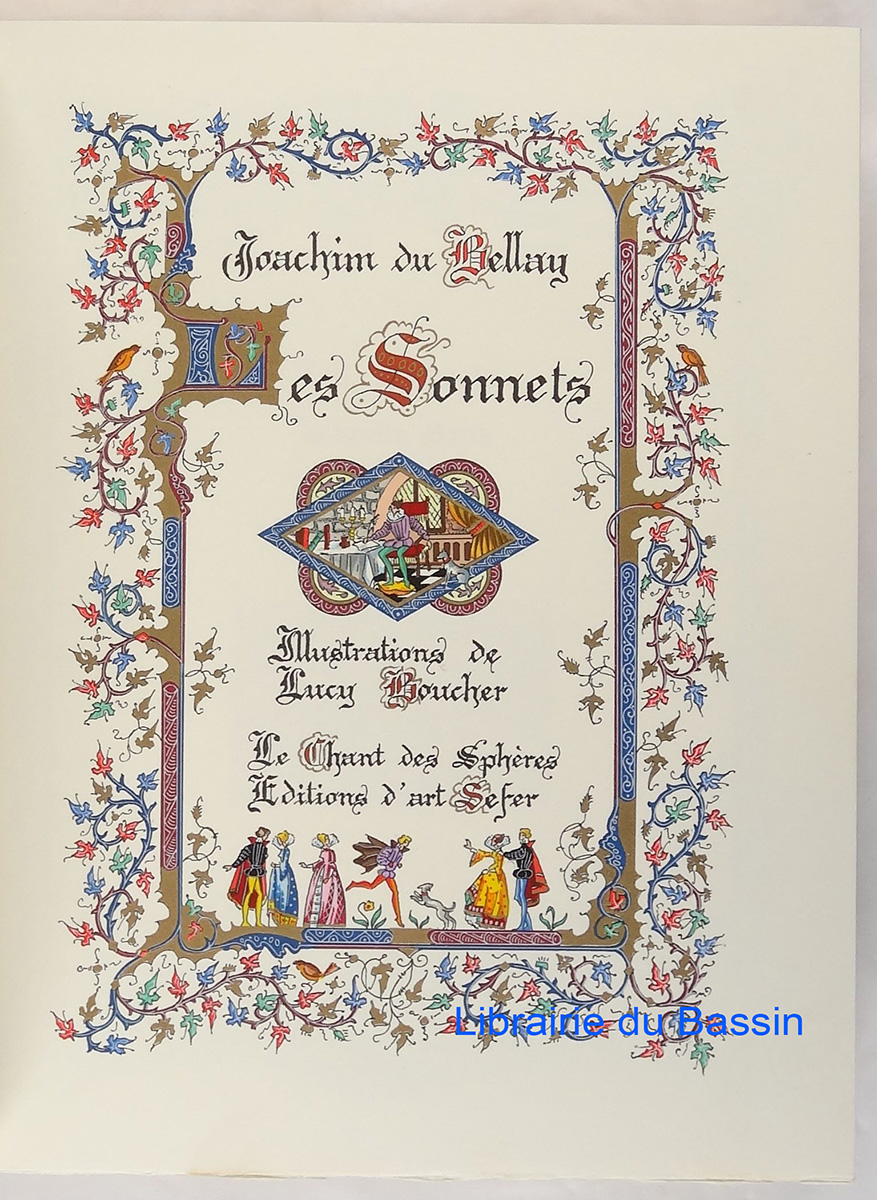 Joachim du Bellay
Les Sonnets
Illustrations de
Lucy Boucher
Le Chant des Sphères
Editions d'art Sefer
Librairie du Bassin